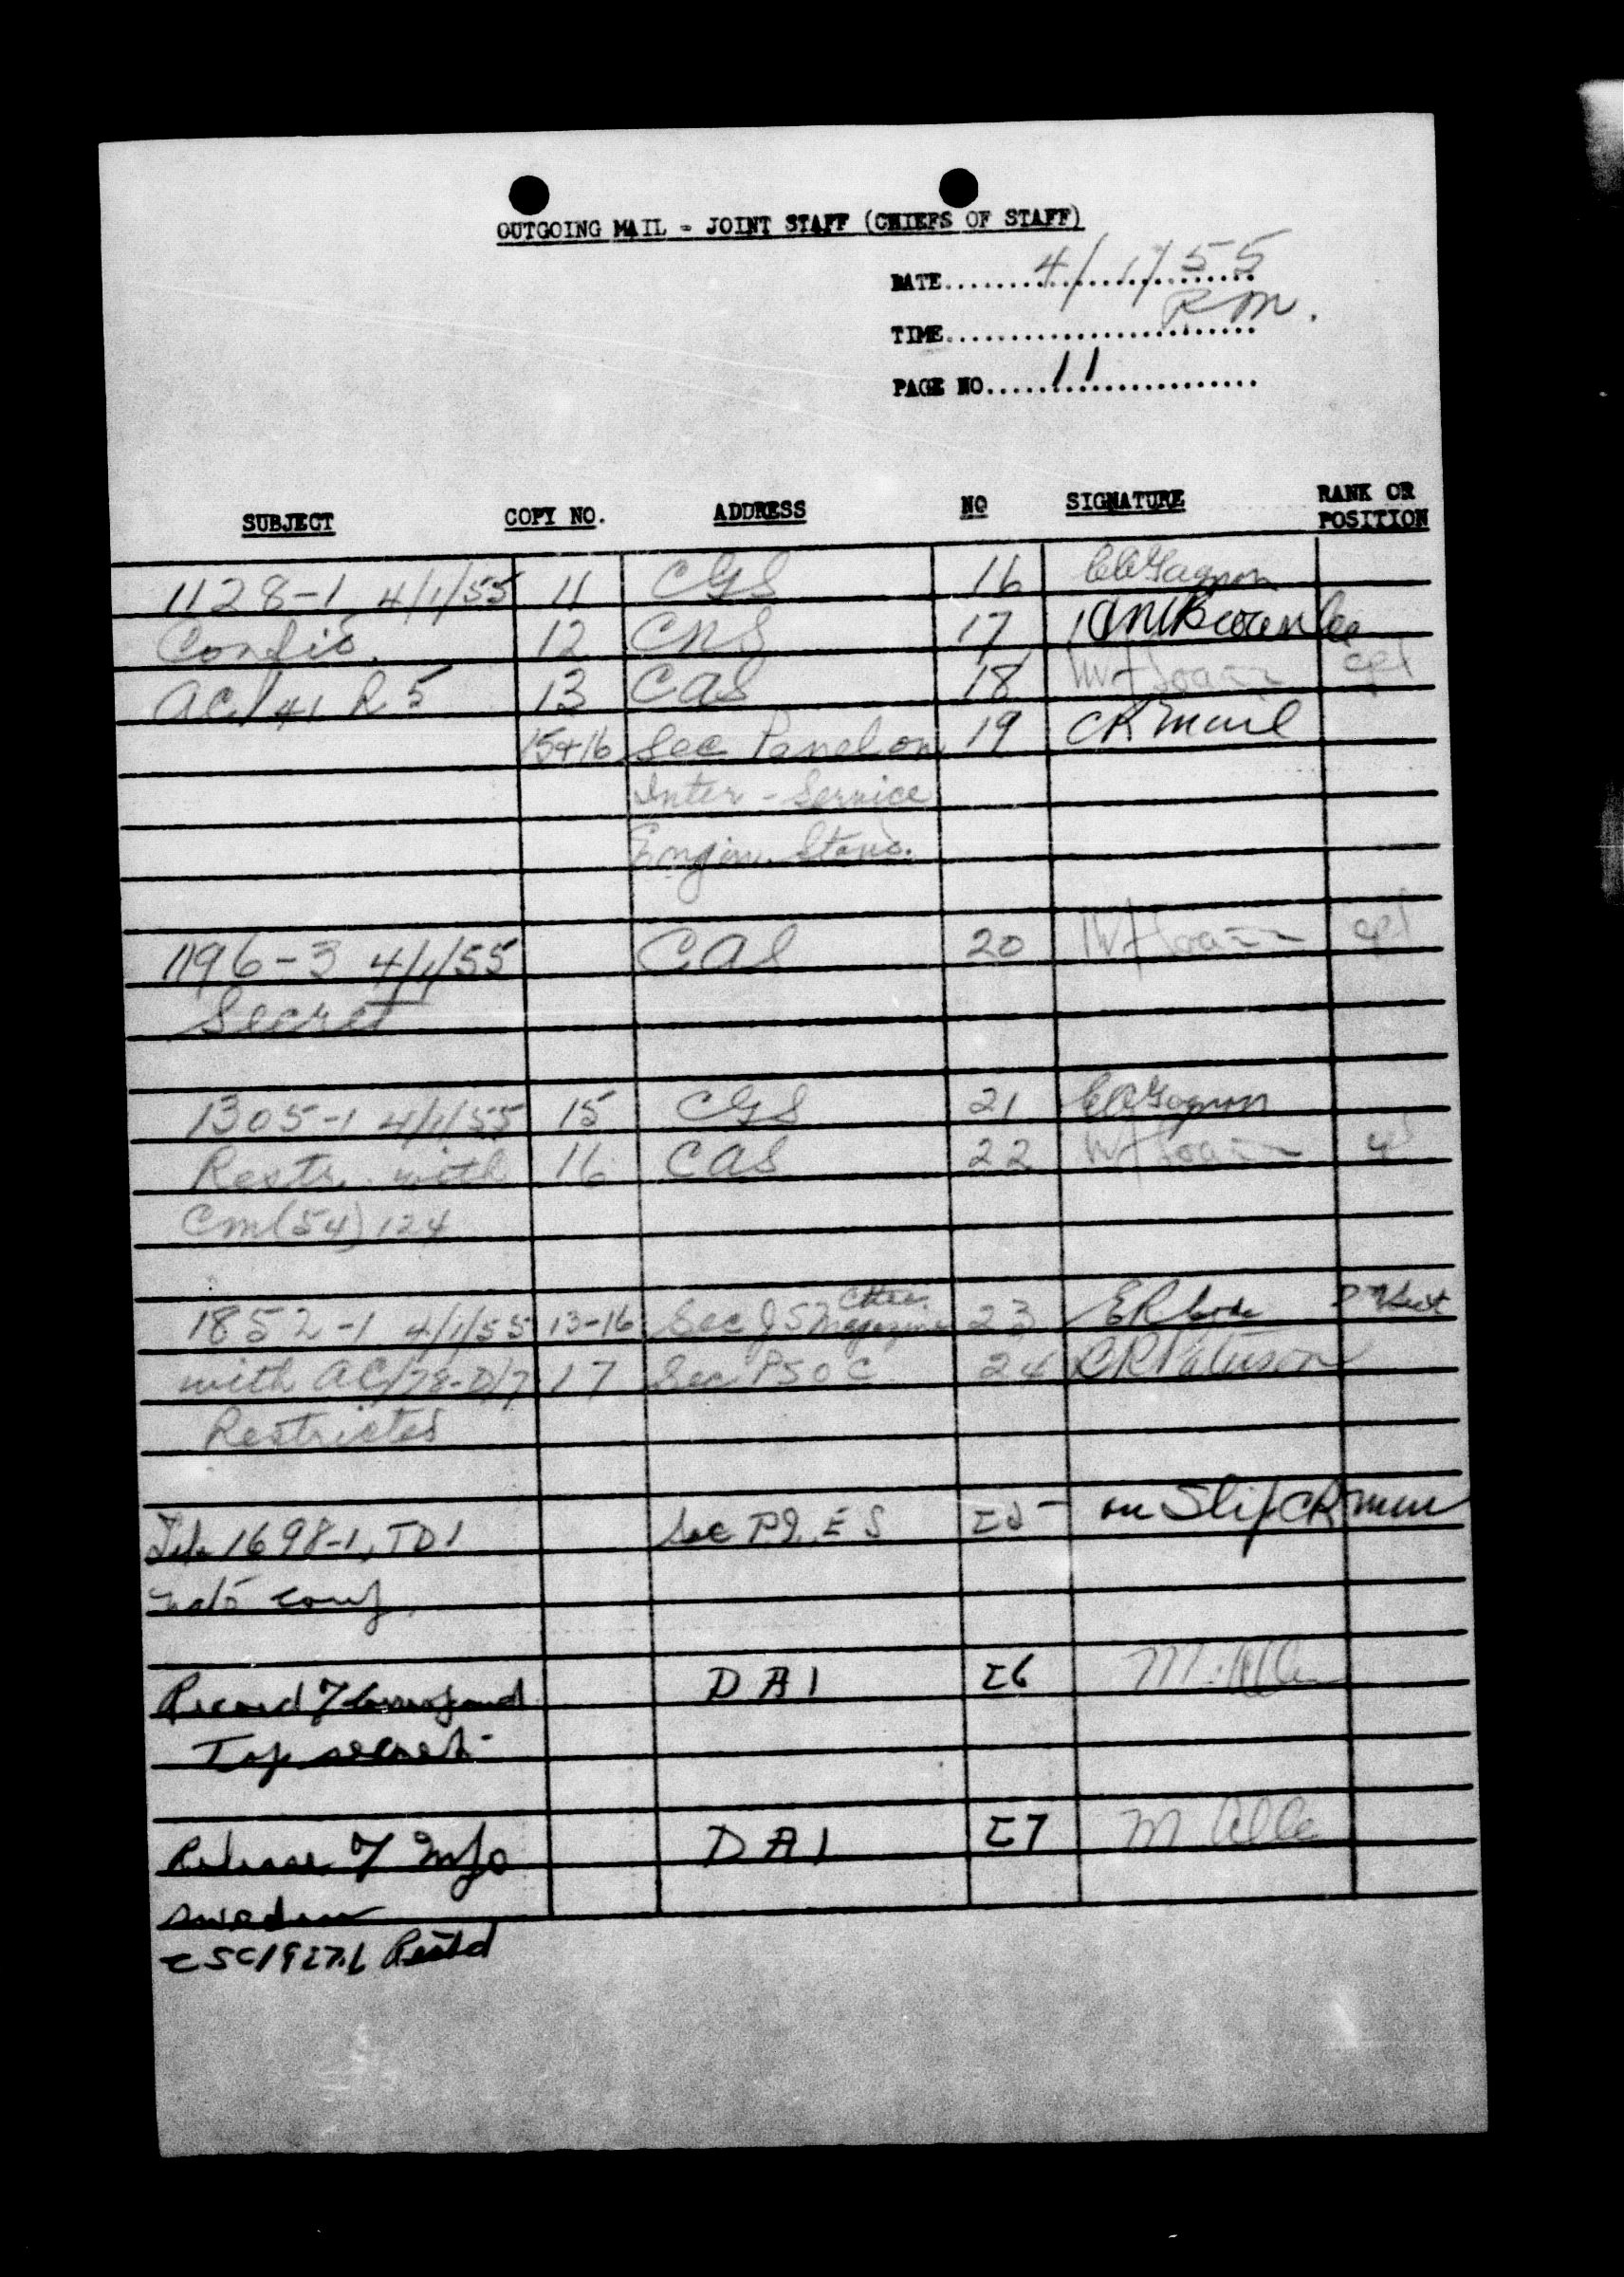 OUTGOING MAIL - JOINT STAFF (CHIEFS OF STAFF)
DATE 4/1/55
TIME P.M.
PAGE NO 11
SUBJECT COPY NO. ADDRESS NO SIGNATURE RANK OR POSITION
1128-1 4/1/55 11 CGS 16 Gagnon
Confid. 12 CNS 17
AC/41 R 5 13 CAS 18 Cpl
15+16 Sec Panel on 19 CR
Inter-Service
Engin. Stand.
1196-3 4/1/55 CAS 20 Cpl
Secret
1305-1 4/1/55 15 CGS 21 Gagnon
Restr. with 16 CAS 22
CM(54)124
1852-1 4/1/55 13-16 Sec JS Magazine Cttee. 23
with AC/78-D/7 17 Sec PSOC 24
Restricted
1698-1, TD1 Sec P.I.E S 25 on Slip CR
Nato conf.
Record of DAI 26
Top secret
Release of Info DAI 27 M
Sweden
CSC1927.1 Restd